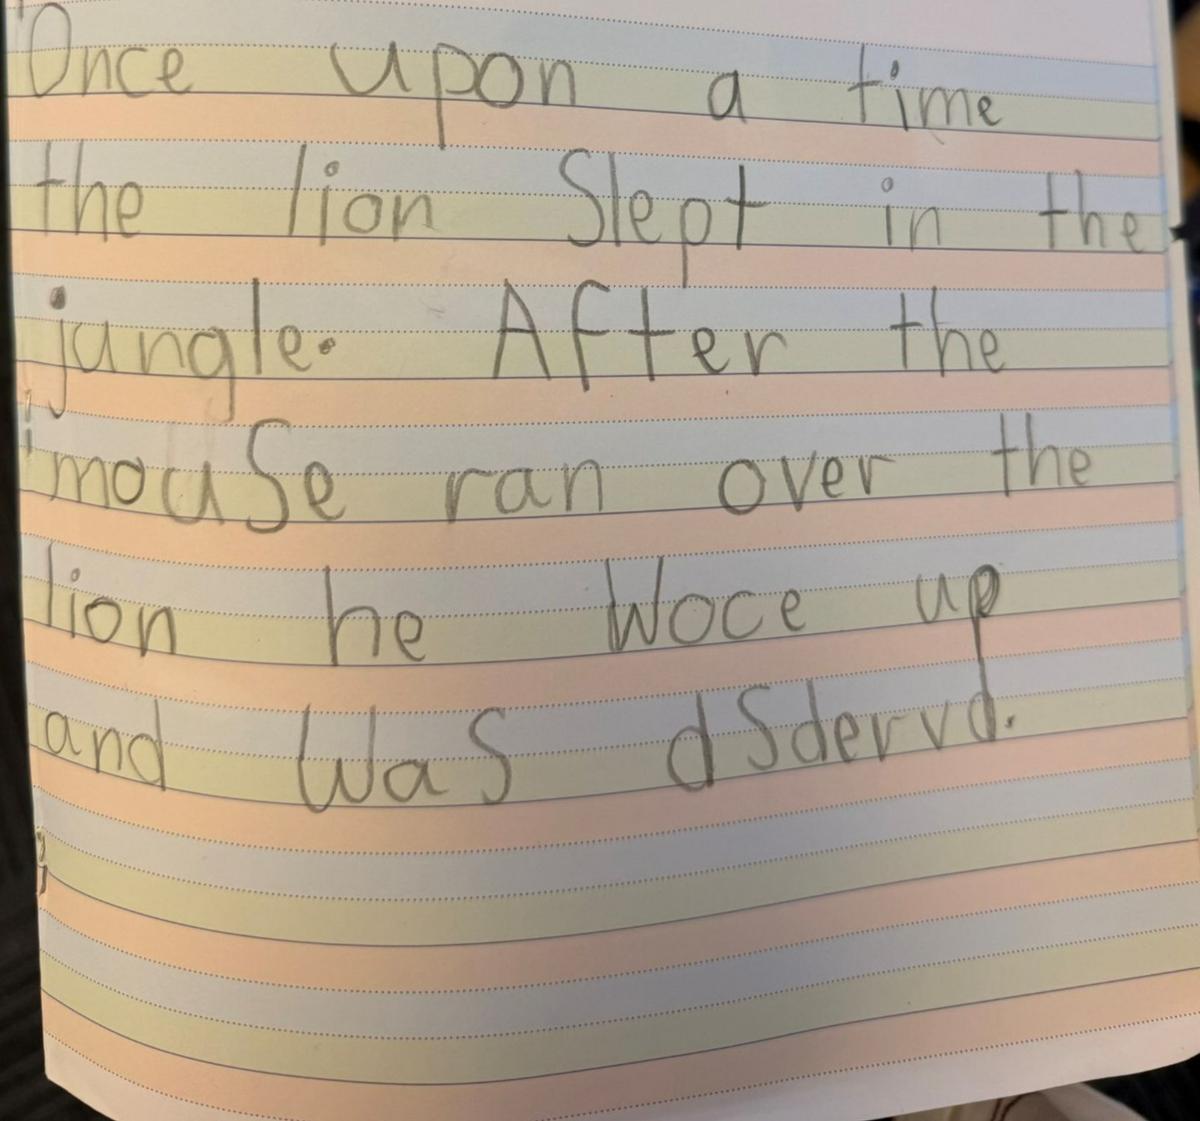 Once upon a time
the lion Slept in the
jungle. After the
mouse ran over the
lion he Woce up
and Was dSdervd.